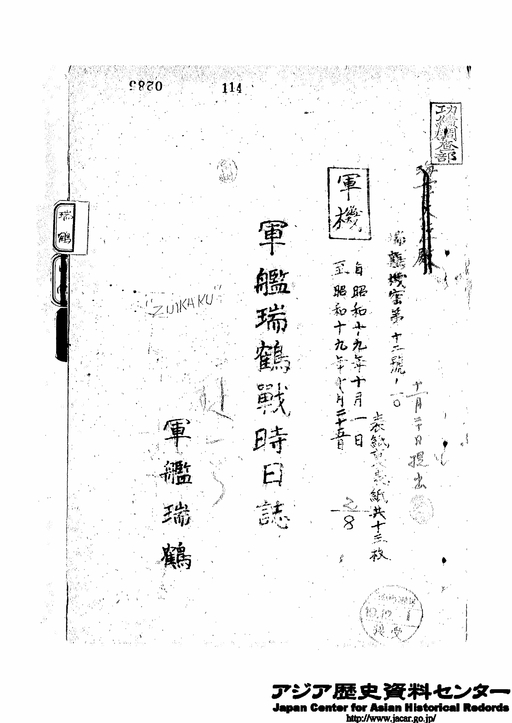 0285
114
功績調査部
瑞鶴機密第十二號ノ一〇
十一月二十日提出
軍機
自昭和十九年十月一日
至昭和十九年十月二十五日
表紙共十三枚
2/8
軍艦瑞鶴戰時日誌
"ZUIKAKU"
軍艦瑞鶴
瑞鶴
アジア歴史資料センター
Japan Center for Asian Historical Records
http://www.jacar.go.jp/